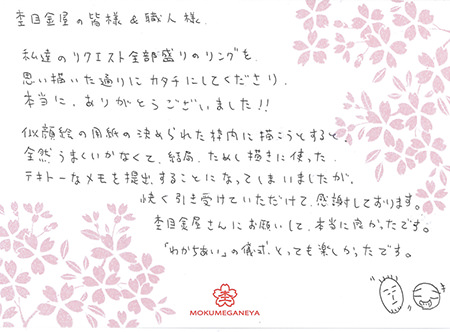 杢目金屋の皆様&職人様.
私達のリクエスト全部盛りのリングを.
思い描いた通りにカタチにしてくださり.
本当に、ありがとうございました!!
似顔絵の用紙の決められた枠内に描こうとすると、
全然うまくいかなくて、結局、ためし描きに使った
テキトーなメモを提出することになってしまいましたが、
快く引き受けていただけて、感謝しております。
杢目金屋さんにお願いして、本当に良かったです。
「わかちあい」の儀式、とっても楽しかったです。
杢
MOKUMEGANEYA